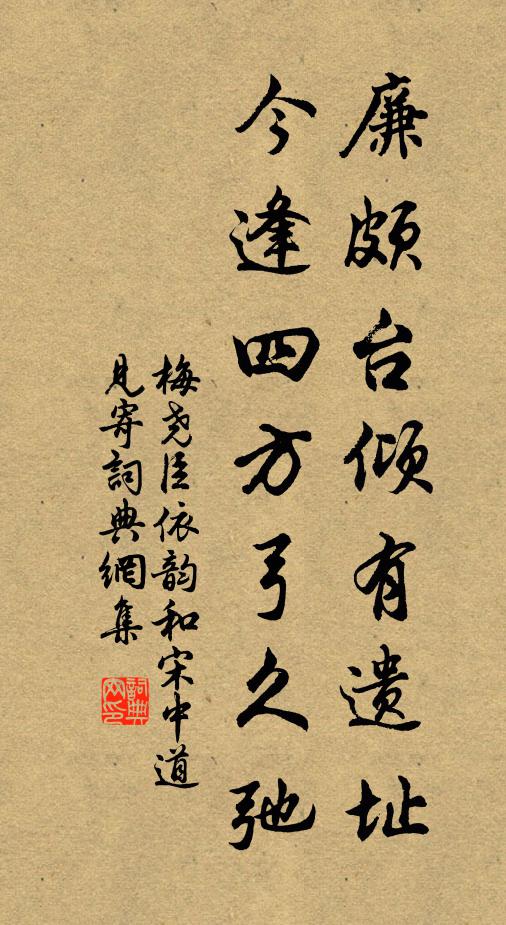 廉頗台傾有遺址
今逢四方弓久弛
梅尧臣依韵和宋中道
見寄詞典網集
詞典
网印